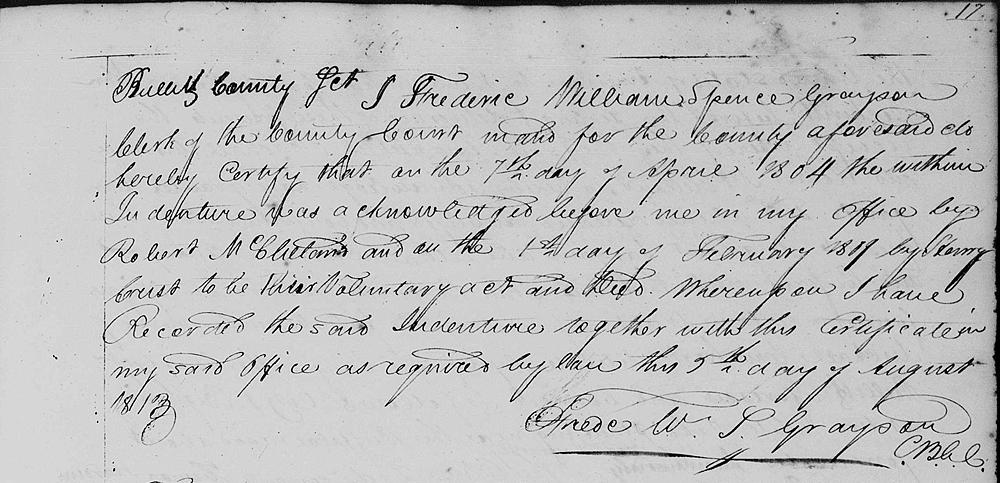 17
Bullitt County Sct I Frederic William Spence Grayson
Clerk of the County Court in and for the County aforesaid do
hereby Certify that on the 7th day of April 1804 the within
Indenture was acknowledged before me in my office by
Robert McClelland and on the 1st day of February by Henry
Crist to be their Voluntary act and Deed. Whereupon I have
Recorded the said Indenture together with this Certificate in
my said office as required by law this 5th day of August
1813
Fredc Wm S. Grayson
C.B.C.C.